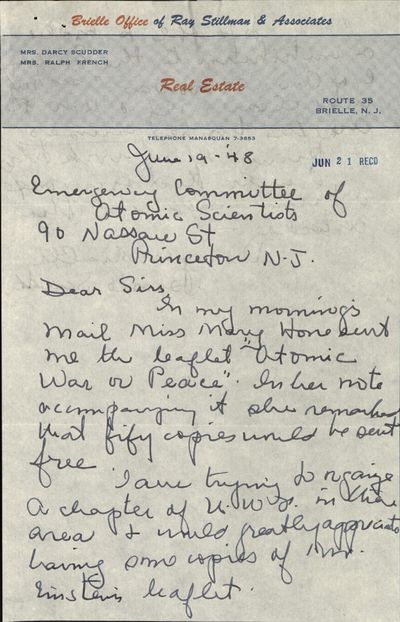 Brielle Office of Ray Stillman & Associates
MRS. DARCY SCUDDER
MRS. RALPH FRENCH
Real Estate
ROUTE 35
BRIELLE, N. J.
TELEPHONE MANASQUAN 7-3853
June 19 - '48
JUN 21 RECD
Emergency Committee of
Atomic Scientists
90 Nassau St
Princeton N.J.
Dear Sirs
In my mornings
mail Miss Mary Hone sent
me the leaflet "Atomic
War or Peace". In her note
accompanying it she remarked
that fify copies would be sent
free
I am trying to organize
a chapter of U.W.F. in this
area & would greatly appreciate
having some copies of Mr.
Einstein's leaflet.